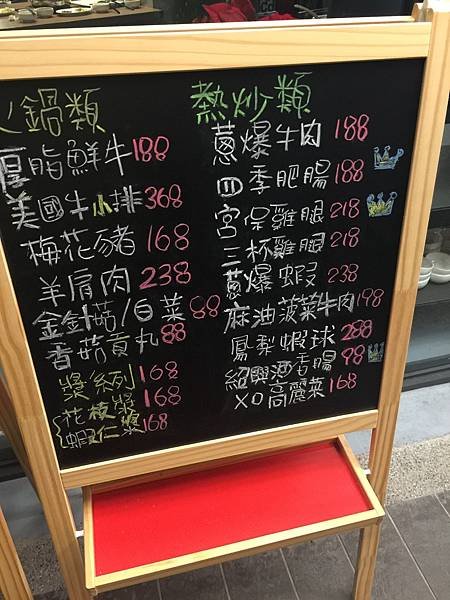 火鍋類
厚脂鮮牛188
美國牛小排368
梅花豬168
羊肩肉238
金針菇/白菜88
香菇貢丸88
漿系列168
花枝漿168
蝦仁漿168
熱炒類
蔥爆牛肉188
四季肥腸188
宮保雞腿218
三杯雞腿218
蔥爆蝦238
麻油菠菜牛肉198
鳳梨蝦球288
紹興酒香腸98
XO高麗菜168